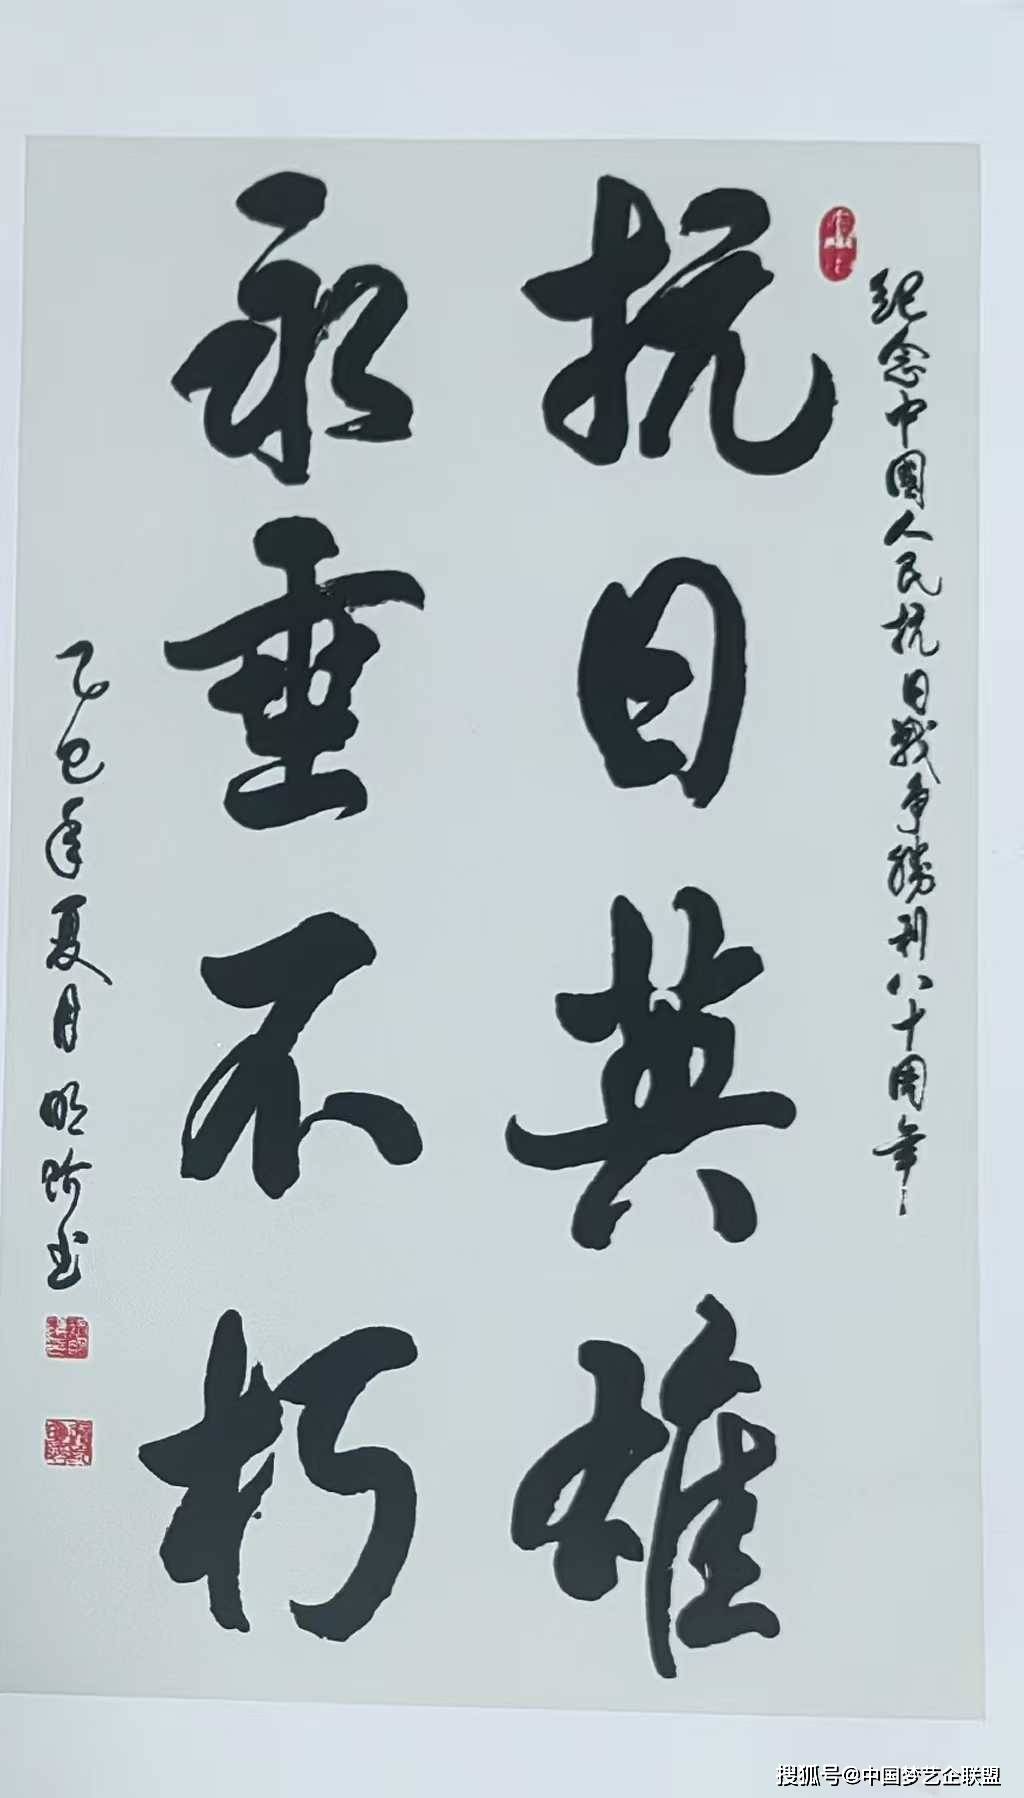 紀念中國人民抗日戰争勝利八十周年
抗日英雄
永垂不朽
乙巳年夏月明珍书
搜狐号@中国梦艺企联盟